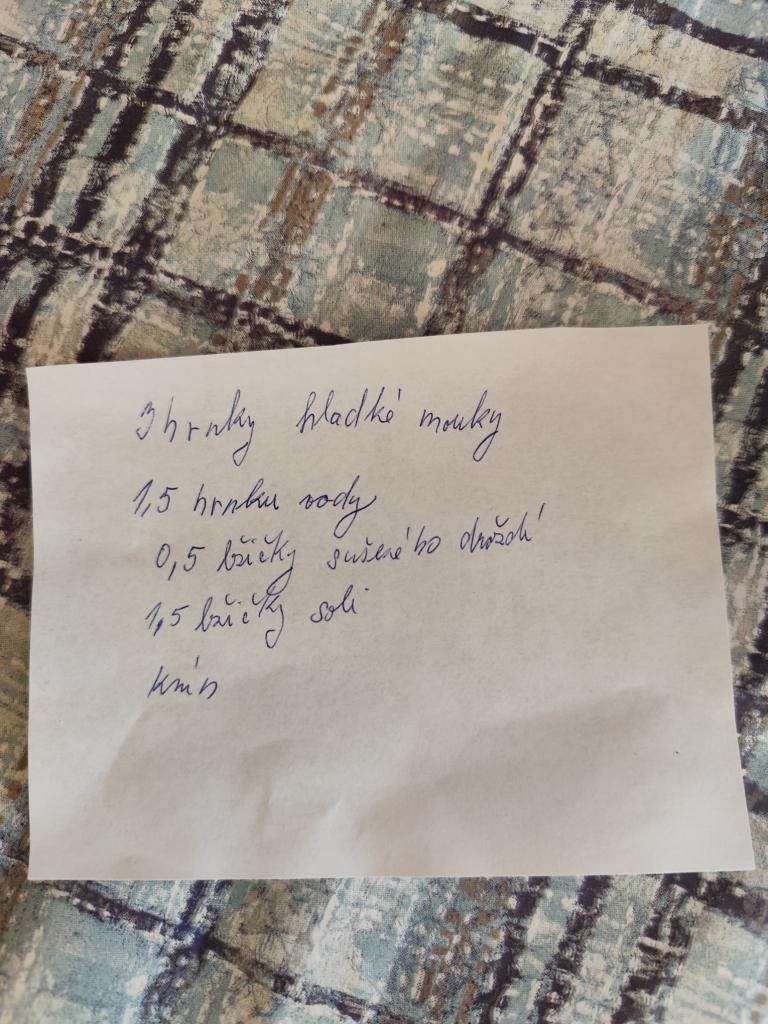 3 hrnky hladké mouky
1,5 hrnku vody
0,5 lžičky sušeného droždí
1,5 lžičky soli
kmín